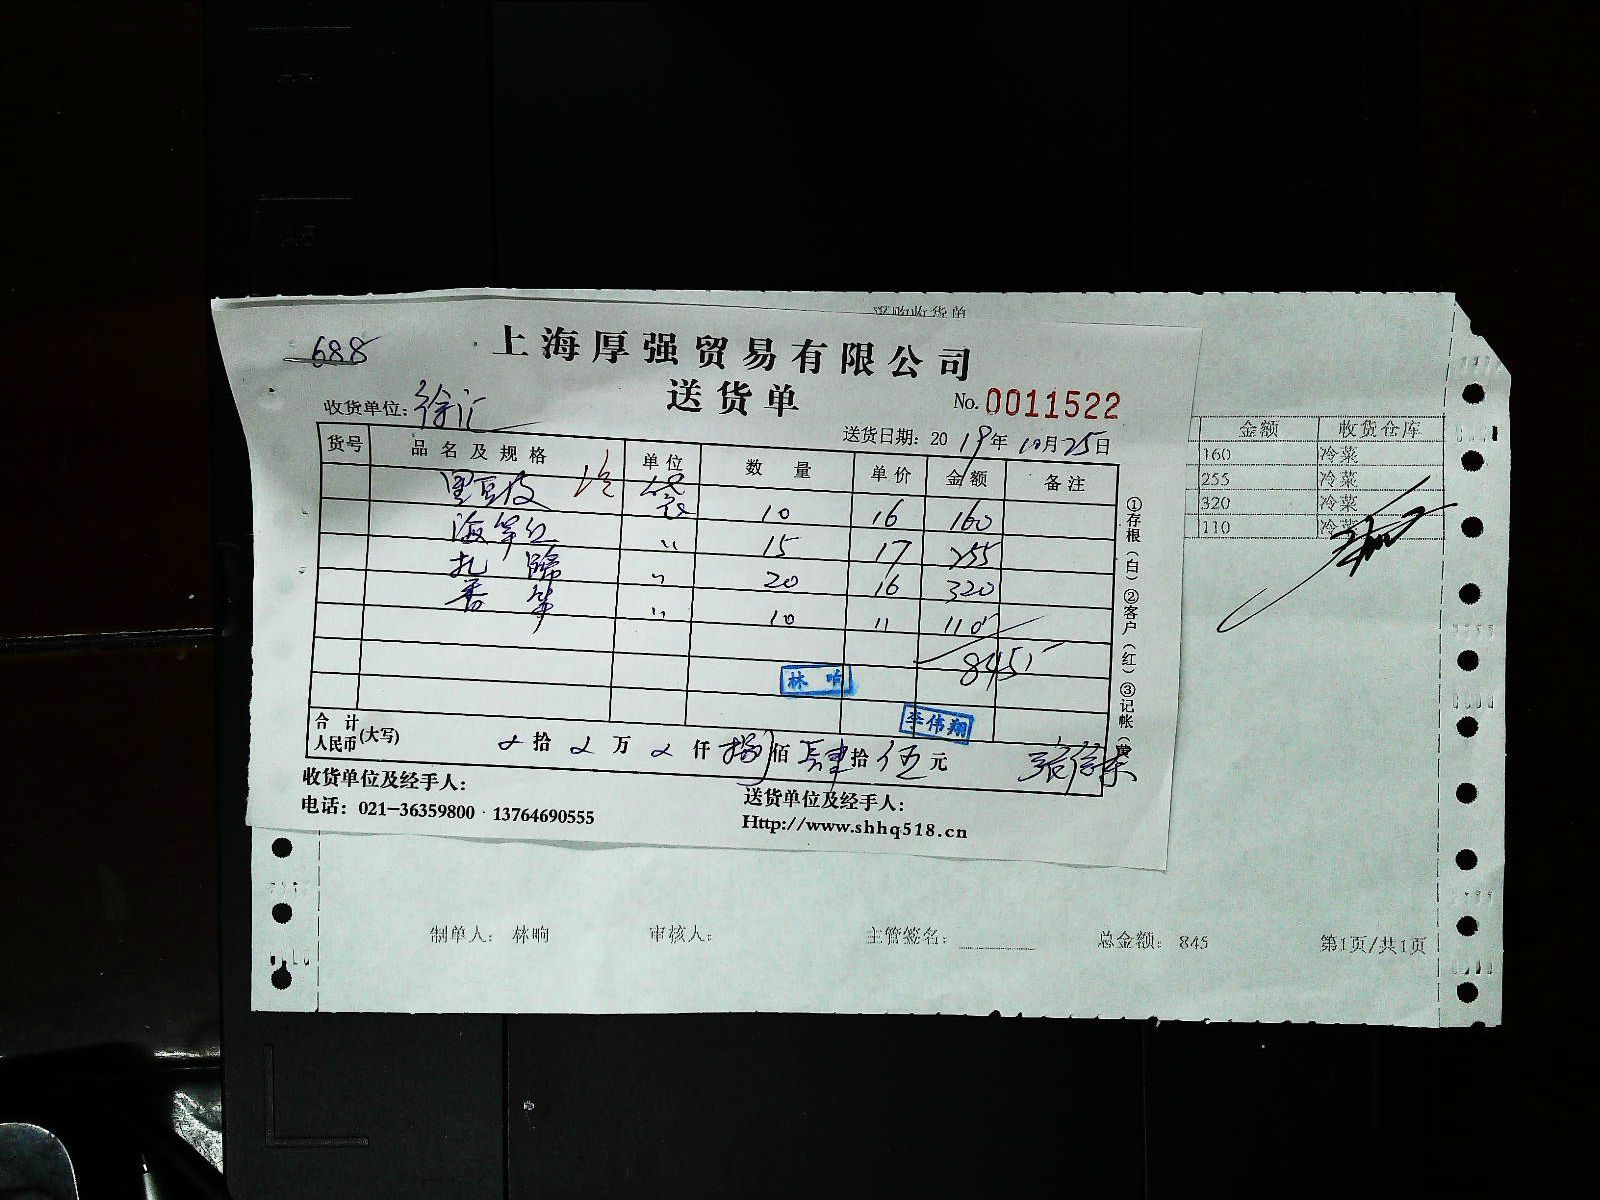 采购收货单
688
上海厚强贸易有限公司
送货单
No. 0011522
收货单位: 徐汇
送货日期: 2019年10月25日
货号 品名及规格 单位 数量 单价 金额 备注
黑豆皮 袋 10 16 160
海笋丝 〃 15 17 255
扎蹄 〃 20 16 320
〃 10 11 110
845
林响
李伟翔
合计人民币(大写) 拾 万 仟 捌佰肆拾伍元
收货单位及经手人:
送货单位及经手人:
电话: 021-36359800 · 13764690555
Http://www.shhq518.cn
①存根(白)②客户(红)③记帐(黄)
金额 收货仓库
160 冷菜
255 冷菜
320 冷菜
110 冷菜
制单人: 林响 审核人: 主管签名: 总金额: 845 第1页/共1页